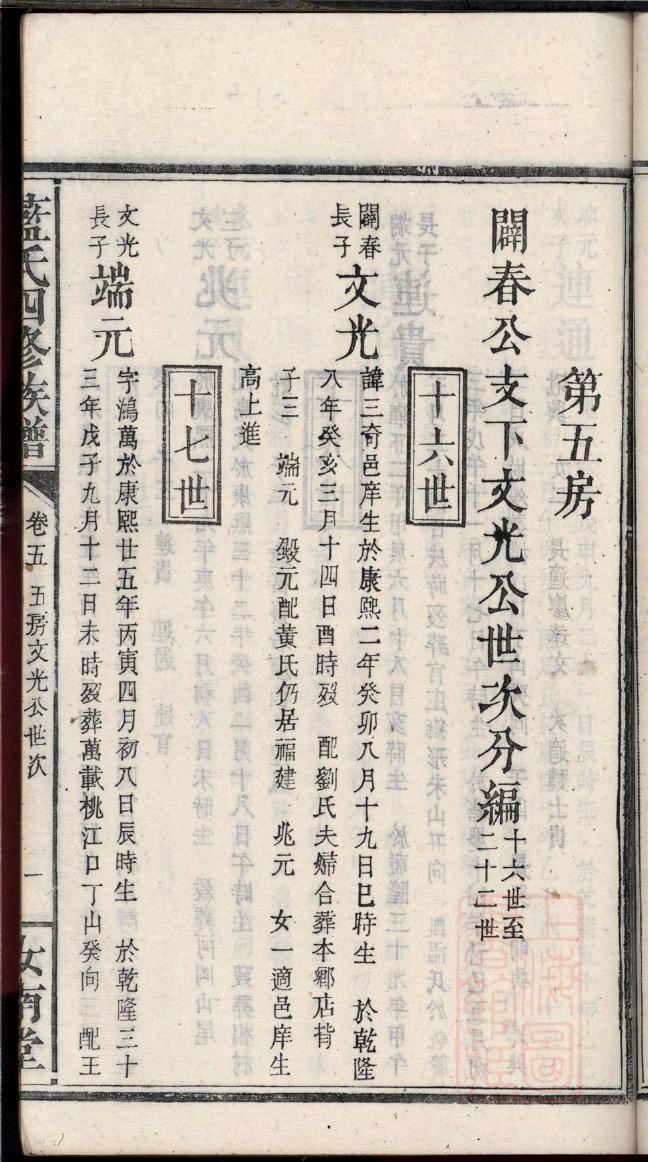 第五房
闢春公支下文光公世次分編 十六世至二十二世
十六世
闢春長子 文光 諱三奇邑庠生於康熙二年癸卯八月十九日巳時生 於乾隆
八年癸亥三月十四日酉時歿 配劉氏夫婦合葬本鄉店背
子三 端元 毀元配黃氏仍居福建 兆元 女一適邑庠生
高上進
十七世
文光長子 端元 字鴻萬於康熙廿五年丙寅四月初八日辰時生 於乾隆三十
三年戊子九月十二日未時歿葬萬載桃江口丁山癸向 配王
藍氏四修族譜 卷五 五房文光公世次 一 汝南堂